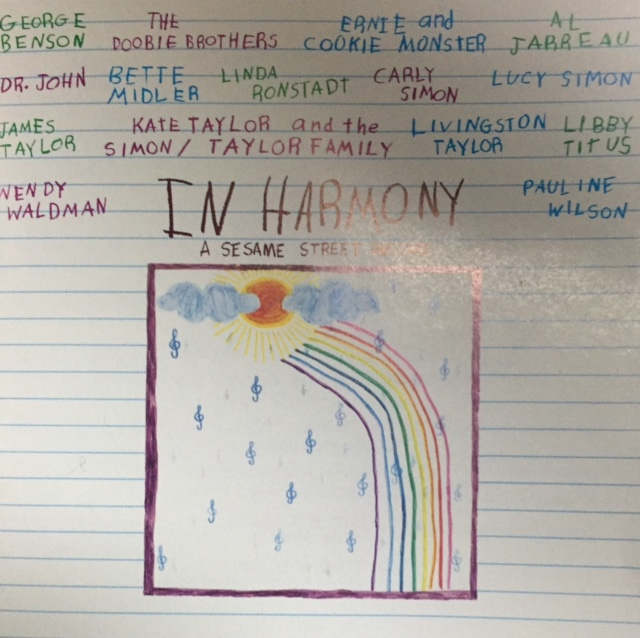 GEORGE BENSON THE DOOBIE BROTHERS ERNIE and COOKIE MONSTER AL JARREAU
DR. JOHN BETTE MIDLER LINDA RONSTADT CARLY SIMON LUCY SIMON
JAMES TAYLOR KATE TAYLOR and the SIMON/TAYLOR FAMILY LIVINGSTON TAYLOR LIBBY TITUS
WENDY WALDMAN PAULINE WILSON
IN HARMONY
A SESAME STREET